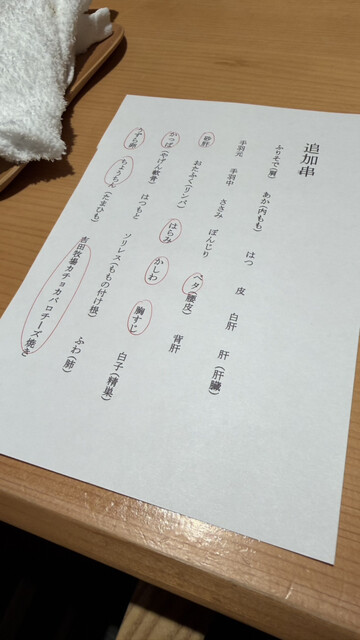 追加串
ふりそで(胸) あか(内もも) はつ 皮 白肝 肝(肝臓)
手羽元 手羽中 ささみ ぼんじり ペタ(腰皮) 背肝
砂肝 おたふく(リンパ) はらみ かしわ 胸すじ 白子(精巣)
かっぱ(やげん軟骨) はつもと ソリレス(ももの付け根) ふわ(肺)
うずら卵 ちょうちん(たまひも) 吉田牧場カチョカバロチーズ焼き